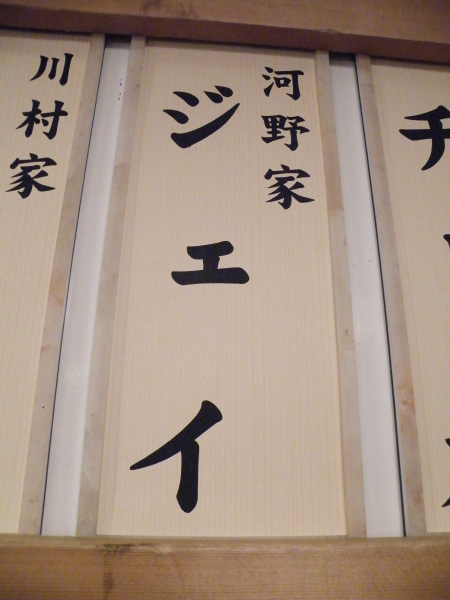 河野家
ジェイ
川村家